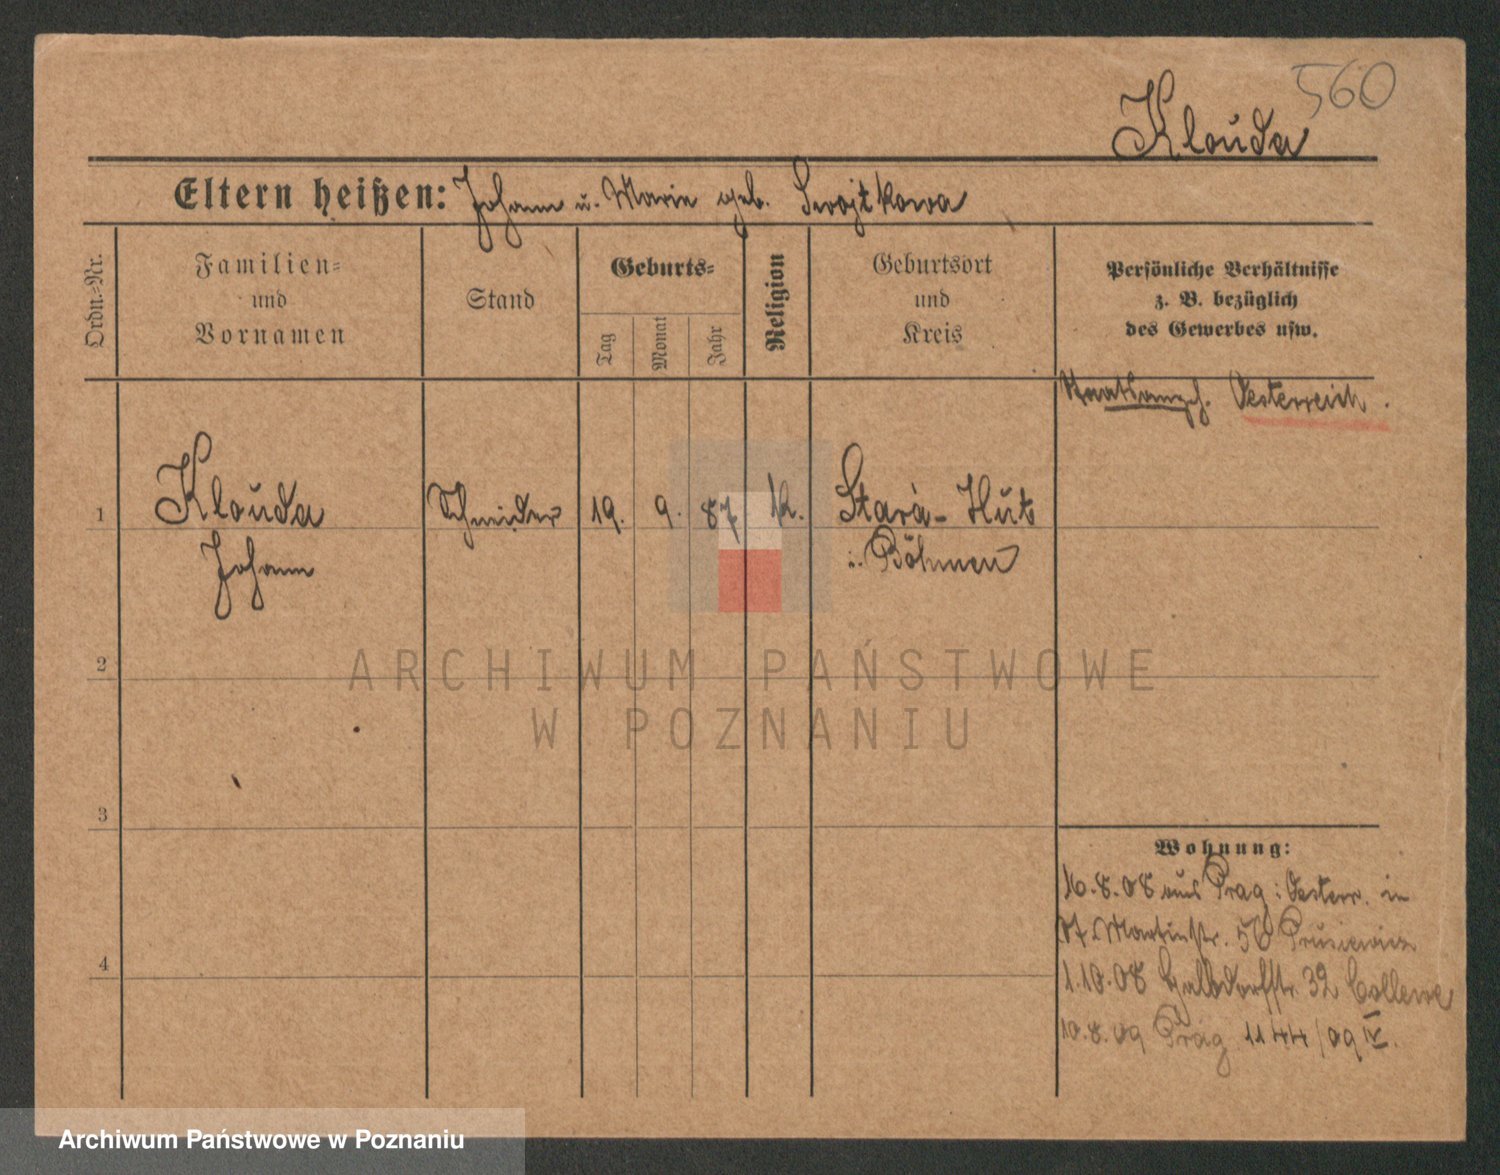 560
Klouda
Eltern heißen: Johann u. Marie geb. Swojtkowa
Ordn.-Nr.
Familien-
und
Vornamen
Stand
Geburts-
Tag
Monat
Jahr
Religion
Geburtsort
und
Kreis
Persönliche Verhältnisse
z. B. bezüglich
des Gewerbes usw.
Staatsangeh. Oesterreich.
1
Klouda
Johann
Schneider
19.
9.
87
k.
Stará-Hut
i. Böhmen
2
ARCHIWUM PAŃSTWOWE
W POZNANIU
3
4
Wohnung:
16.8.08 aus Prag i. Oesterr. in
St. Martinstr. 56 Prusiewicz
1.10.08 Halbdorfstr. 32
10.8.09 Prag 1144/09 IV.
Archiwum Państwowe w Poznaniu